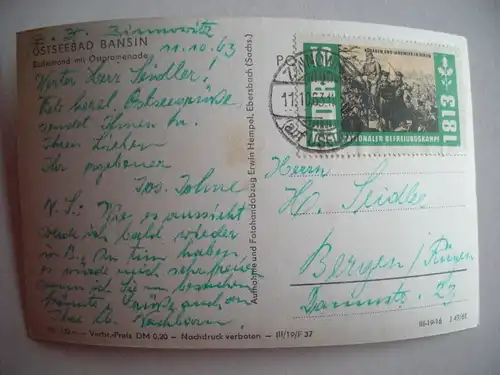 z. Z. Zinnowitz
OSTSEEBAD BANSIN
Südstrand mit Ostpromenade
11.10.63
Werter Herr Seidler!
herzl. Ostseegrüße
sendet Ihnen u.
Ihren Lieben
Ihr ergebener
Jos. Johne
N.S: Wie es aussieht
werde ich bald wieder
in B. zu tun haben,
es würde mich sehr freuen,
wenn ich Sie
könnte, auch an
Nachbarn.
Verbr.-Preis DM 0,20 - Nachdruck verboten - III/19/F 37
Aufnahme und Fotohandabzug Erwin Hempel, Ebersbach (Sachs.)
PO
11.10.63
NATIONALER BEFREIUNGSKAMPF
1813
Herrn
H. Seidler
Bergen/Rügen
Dammstr. 23
III-19-16 J 47/61